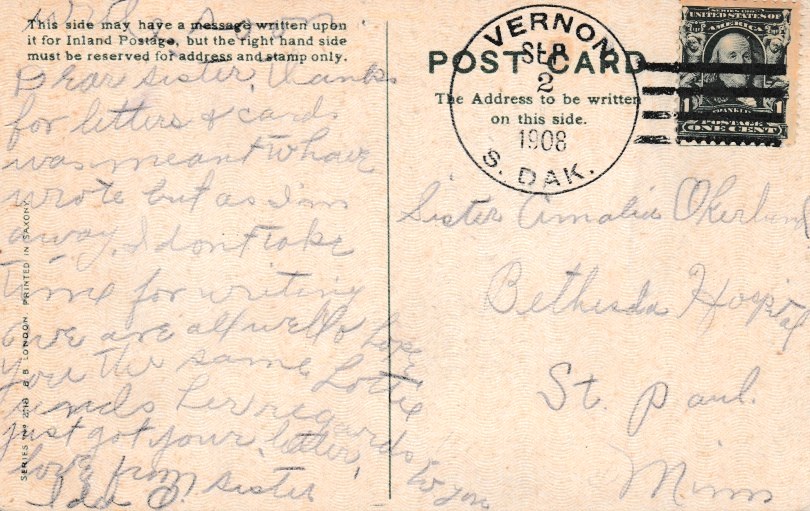 This side may have a message written upon
it for Inland Postage, but the right hand side
must be reserved for address and stamp only.
Write soon
Dear sister, thanks
for letters & cards
was meant to have
wrote but as I'm
away, I don't take
time for writing
we are all well & hope
you the same Lottie
sends her regards to you
just got your letter,
love from sister
Ida O.
SERIES No B. B. LONDON PRINTED IN SAXONY
POST CARD
The Address to be written
on this side.
VERNON
SEP
2
1908
S. DAK.
SERIES 1902
UNITED STATES OF
AMERICA
FRANKLIN
1 1
POSTAGE
ONE CENT
Sister Amalia Okerlund
Bethesda Hospital
St. Paul.
Minn